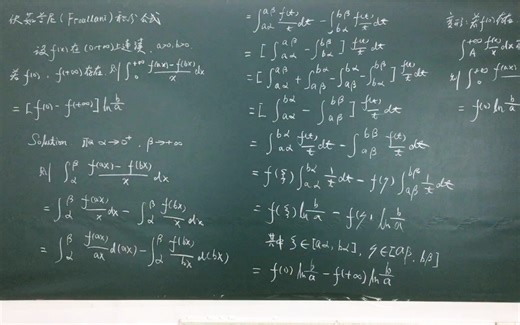 伏茹兰尼 (Froullani) 积分公式
设 f(x) 在 (0,+∞) 上连续, a>0, b>0
若 f(0), f(+∞) 存在, 则 ∫_0^{+∞} \frac{f(ax)-f(bx)}{x} dx
= [f(0) - f(+∞)] ln \frac{b}{a}
Solution 取 α→0⁺, β→+∞
则 ∫_α^β \frac{f(ax)-f(bx)}{x} dx
= ∫_α^β \frac{f(ax)}{x} dx - ∫_α^β \frac{f(bx)}{x} dx
= ∫_α^β \frac{f(ax)}{ax} d(ax) - ∫_α^β \frac{f(bx)}{bx} d(bx)
= ∫_{aα}^{aβ} \frac{f(t)}{t} dt - ∫_{bα}^{bβ} \frac{f(t)}{t} dt
= [∫_{aα}^{aβ} - ∫_{bα}^{bβ}] \frac{f(t)}{t} dt
= [∫_{aα}^{bα} + ∫_{bα}^{aβ} - ∫_{bα}^{aβ} - ∫_{aβ}^{bβ}] \frac{f(t)}{t} dt
= [∫_{aα}^{bα} - ∫_{aβ}^{bβ}] \frac{f(t)}{t} dt
= ∫_{aα}^{bα} \frac{f(t)}{t} dt - ∫_{aβ}^{bβ} \frac{f(t)}{t} dt
= f(ξ) ∫_{aα}^{bα} \frac{1}{t} dt - f(η) ∫_{aβ}^{bβ} \frac{1}{t} dt
= f(ξ) ln \frac{b}{a} - f(η) ln \frac{b}{a}
其中 ξ∈[aα, bα], η∈[aβ, bβ]
= f(0) ln \frac{b}{a} - f(+∞) ln \frac{b}{a}
若 f(0) 存在
∫_A^{+∞} \frac{f(x)}{x} dx
则 ∫_0^{+∞} \frac{f(ax)
f(0) ln \frac{b}{a}